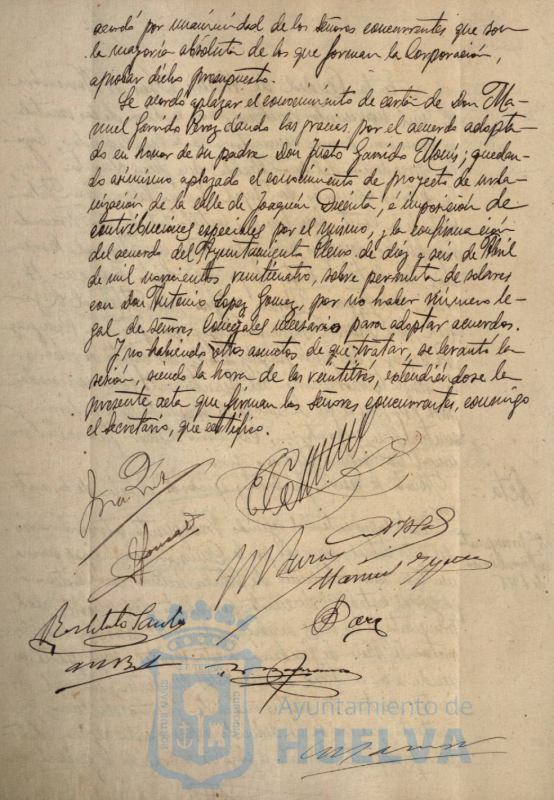 acordó por unanimidad de los Señores concurrentes que son
la mayoria absoluta de los que forman la Corporación,
aprobar dicho presupuesto.
Se acordó aplazar el conocimiento de carta de Don Ma-
nuel Garrido Perez dando las gracias por el acuerdo adopta-
do en honor de su padre Don Justo Garrido; quedan-
do asimismo aplazado el conocimiento de proyecto de urba-
nización de la calle de Joaquin Dicenta, e imposición de
contribuciones especiales por el mismo, y la confirmación
del acuerdo del Ayuntamiento Pleno de diez y seis de Abril
de mil novecientos veinticuatro, sobre permuta de solares
con Don Antonio Lopez Gomez, por no haber número le-
gal de Señores Concejales necesario para adoptar acuerdos.
Y no habiendo otros asuntos de que tratar, se levantó la
sesión, siendo la hora de las veintitrés, extendiéndose la
presente acta que firman los Señores concurrentes, conmigo
el Secretario, que certifico.
Manuel
Ayuntamiento de
HUELVA